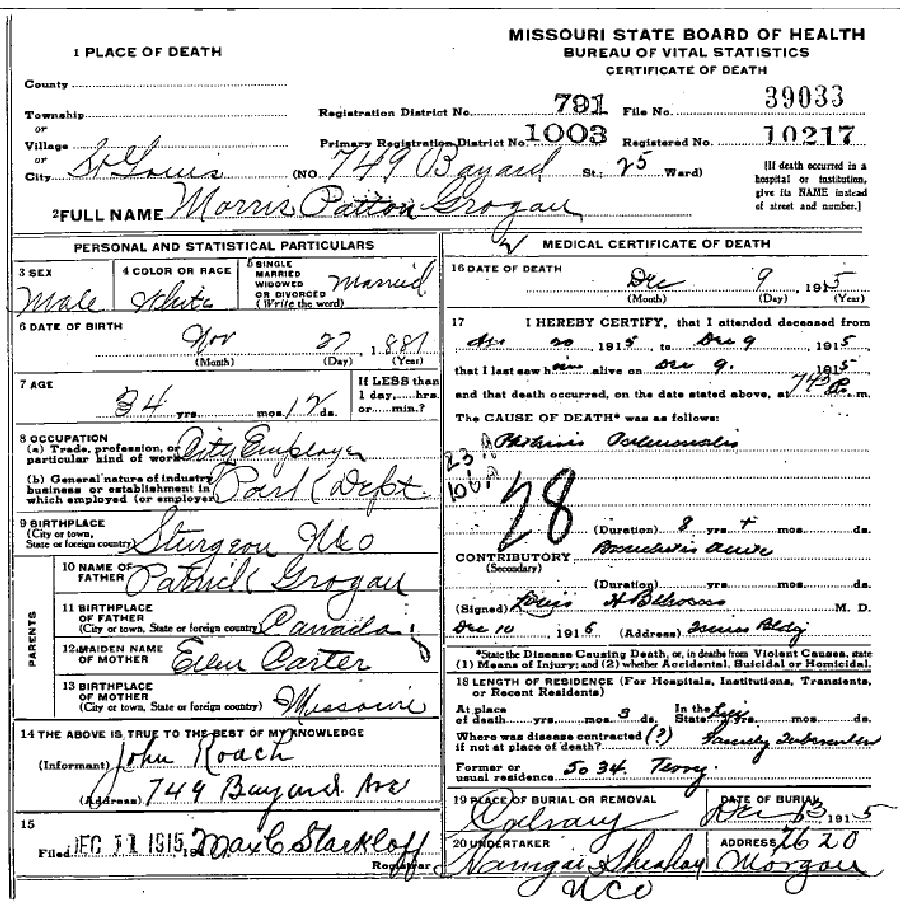 MISSOURI STATE BOARD OF HEALTH
BUREAU OF VITAL STATISTICS
CERTIFICATE OF DEATH
1 PLACE OF DEATH
County
Township
or
Village
or
City St Louis
Registration District No. 791 File No. 39033
Primary Registration District No. 1003 Registered No. 10217
(NO. 749 Bayard St; 25 Ward)
[If death occurred in a
hospital or institution,
give its NAME instead
of street and number.]
2 FULL NAME Morris Patton Grogan
PERSONAL AND STATISTICAL PARTICULARS
3 SEX
Male
4 COLOR OR RACE
White
5 SINGLE
MARRIED
WIDOWED
OR DIVORCED
(Write the word)
Married
6 DATE OF BIRTH
Nov 27, 1881
(Month) (Day) (Year)
7 AGE
34 yrs. mos. 12 ds.
If LESS than
1 day, hrs.
or min.?
8 OCCUPATION
(a) Trade, profession, or
particular kind of work City Employe
(b) General nature of industry
business or establishment in
which employed (or employer) Park Dept.
9 BIRTHPLACE
(City or town,
State or foreign country) Sturgeon Mo
PARENTS
10 NAME OF
FATHER Patrick Grogan
11 BIRTHPLACE
OF FATHER
(City or town, State or foreign country) Canada
12 MAIDEN NAME
OF MOTHER Ellen Carter
13 BIRTHPLACE
OF MOTHER
(City or town, State or foreign country) Missouri
14 THE ABOVE IS TRUE TO THE BEST OF MY KNOWLEDGE
(Informant) John Roach
(Address) 749 Bayard Ave
15
Filed DEC 11 1915, 191 Max C Starkloff
Registrar
MEDICAL CERTIFICATE OF DEATH
16 DATE OF DEATH
Dec 9, 1915
(Month) (Day) (Year)
17 I HEREBY CERTIFY, that I attended deceased from
20 1915 to Dec 9 1915
that I last saw him alive on Dec 9. 1915
and that death occurred, on the date stated above, at 745 P. m.
The CAUSE OF DEATH* was as follows:
Phthisis Pulmonalis
28
(Duration) 8 yrs. + mos. ds.
CONTRIBUTORY
(Secondary)
(Duration) yrs. mos. ds.
(Signed) Louis H M. D.
Dec 10 1915 (Address) Bldg
*State the Disease Causing Death, or, in deaths from Violent Causes, state
(1) Means of Injury; and (2) whether Accidental, Suicidal or Homicidal.
18 LENGTH OF RESIDENCE (For Hospitals, Institutions, Transients,
or Recent Residents)
At place
of death yrs. mos. 3 ds. In the
State Life yrs. mos. ds.
Where was disease contracted (?)
if not at place of death? Family Tuberculous
Former or
usual residence 5034. Terry.
19 PLACE OF BURIAL OR REMOVAL
Calvary
DATE OF BURIAL
Dec 13 1915
20 UNDERTAKER
Sheahan
UCo
ADDRESS 2620
Morgan